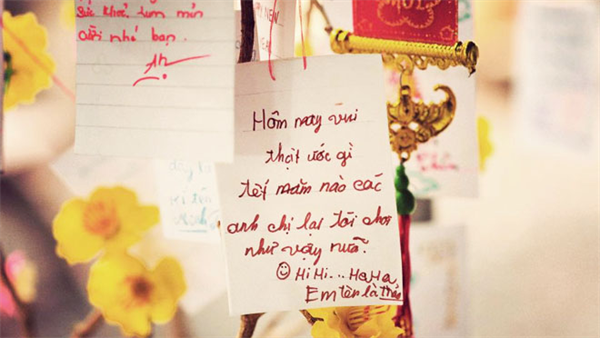 Sức khỏe luôn mỉn
cười nhé bạn.
Hôm nay vui
thật ước gì
tết năm nào các
anh chị lại tới chơi
như vậy nữa.
Hi Hi... Ha Ha,
Em tên là Thảo